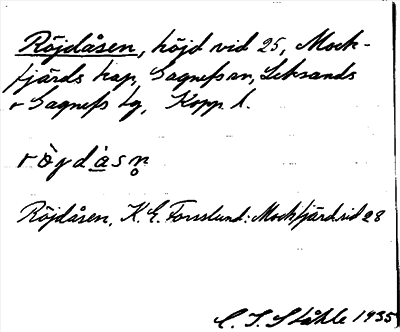 Röjdåsen, höjd vid 25, Mock-
fjärds kap, Gagnefs sn, Leksands
o Gagnefs tg, Kopp. l.
röjdåsn̥
Röjdåsen, K. E. Forsslund: Mockfjärd sid 28
C. I. Ståhle 1935